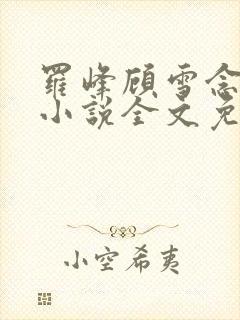 羅峰顧雪念
小說全文免
小空希夷